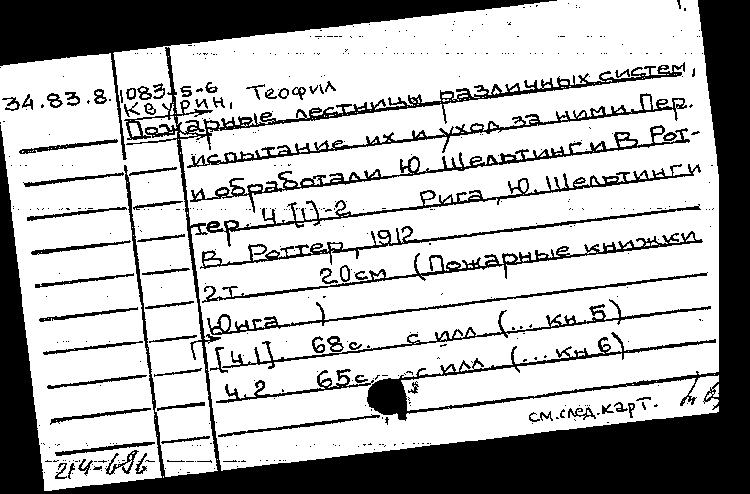 34.83.8.1083-5-6
Квурин, Теофил
Пожарные лестницы различных систем,
испытание их и уход за ними. Пер.
и обработали Ю. Шельтинг и В. Рот-
тер. Ч.[1]-2 Рига, Ю. Шельтинг и
В. Роттер, 1912
2 т. 20см (Пожарные книжки
Юнга )
[Ч.1]. 68с. с илл. (... кн. 5)
Ч.2. 65с. с илл. (... кн 6)
см. след. карт.
214-696